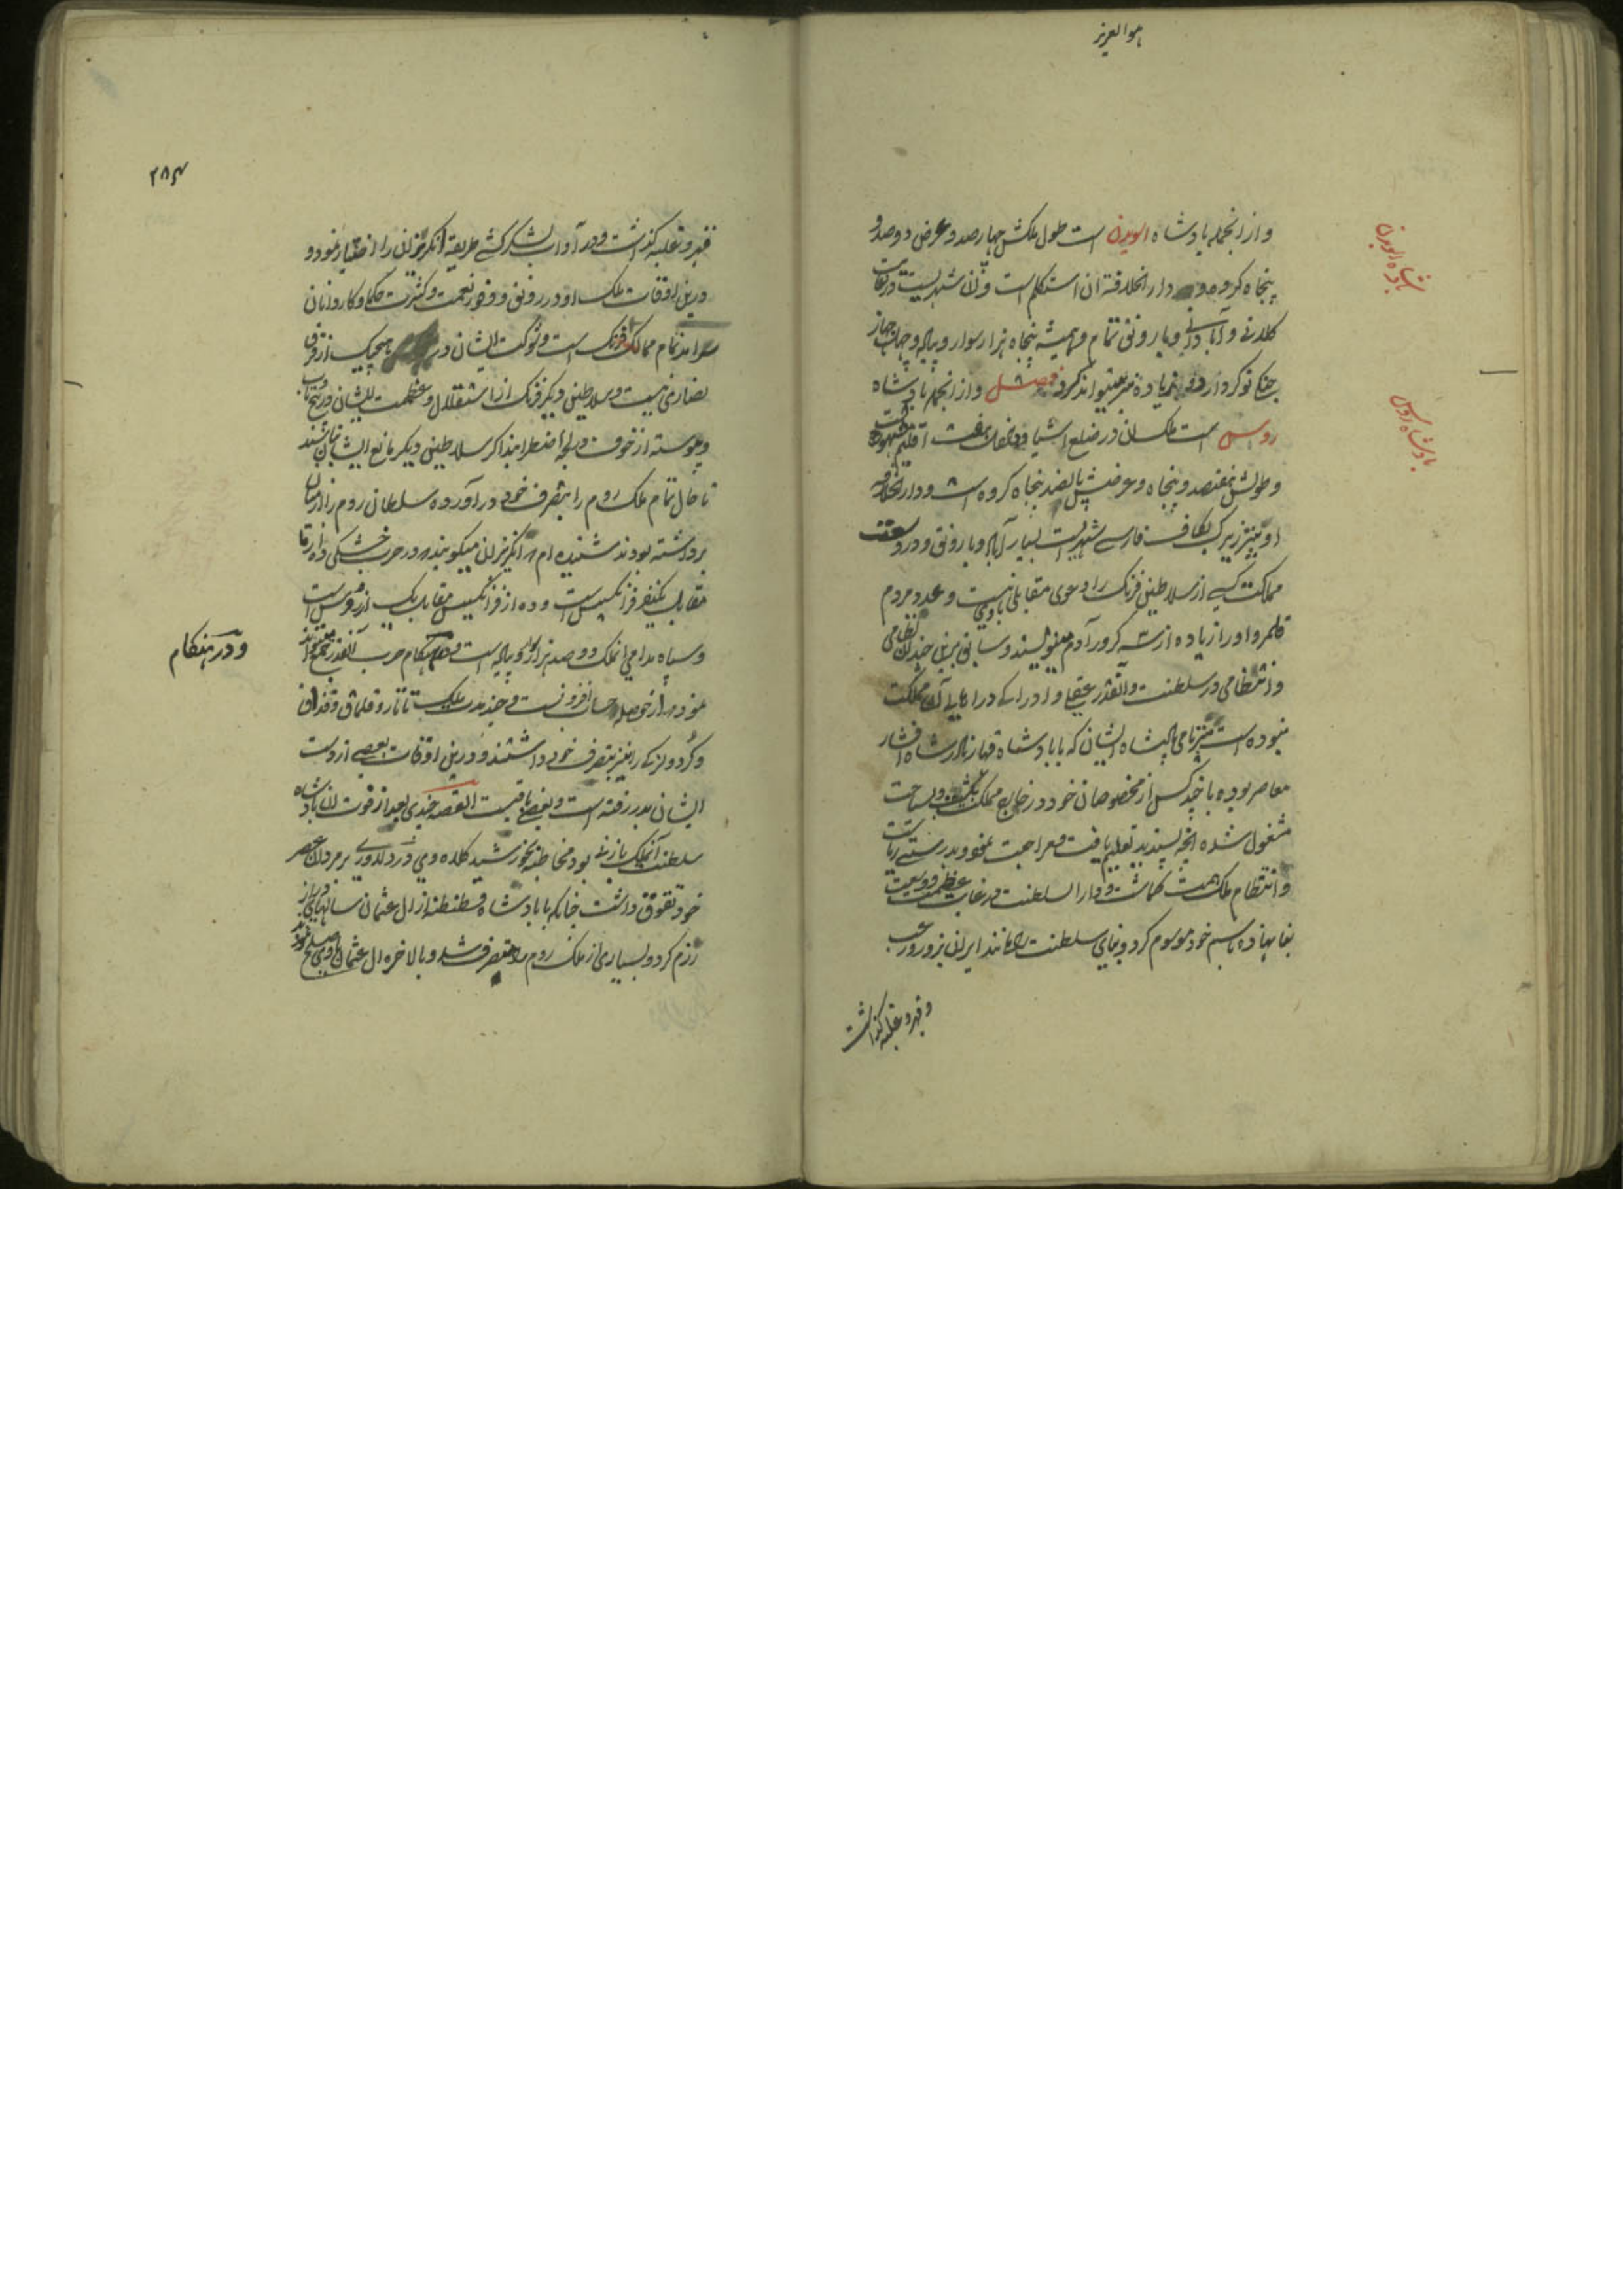 هوالعزیز
و از انجمله بادشاه السویدن است طول ملکش چهارصد و عرض دوصد و
پنجاه کروه و دارالخلافة ان استکلم است و آن شهریست در غایت
کلانی و آبادانی و با رونق تمام و همیشه پنجاه هزار سوار و پیاله و چهل جهاز
جنکی نوکر دارد و زیاده نیز میتواند کرد فصل و از انجمله بادشاه
روس است ملک ان در ضلع اشیا و داخل هفت اقلیم
و طولش هفتصد و پنجاه و عرضش پانصد پنجاه کروه است و دارالخلافه
او پیترزبرک بکاف فارسے شهریست بسیار آباد و با رونق و در وسعت
مملکت کسے از سلاطین فرنک را دعوی مقابلی با وی نیست و عدد مردم
قلمرو او را زیاده از سه کرور آدم مینویسند و سابق برین چندان نظامی
و انتظامی در سلطنت و آنقدر عقلے و ادراکے در اهالے آن مملکت
نبوده است پیتر نامی بادشاه ایشان که با بادشاه قهار نادر شاه افشار
معاصر بوده با چند کس از مخصوصان خود در خارج مملکت بکشت و سیاحت
مشغول شده انچه پسندید تعلیم یافت و مراجعت نمود و بدرستے ریاست
و انتظام ملک همت کماشت و دارالسلطنت در غایت عظمت و وسعت
بنا نهاده باسم خود موسوم کرد و بنای سلطنت را مانند ایران بزور و رعب
و قهر و غلبه کذاشت
بادشاه السویدن
بادشاه روس
۲۸۴
قهر و غلبه کذاشت و در آداب لشکرکشے طریقه انکریزان را اختیار نمود و
درین اوقات ملک او در رونق و وفور نعمت و کثرت حکما و کاردانان
سرآمد تمام ممالک فرنک است و شوکت ایشان در هیچیک از فرق
نصاری نیست و سلاطین دیکر فرنک از استقلال و عظمت ایشان در پیچ و تاب
و پیوسته از خوف در لجه اضطرابند اکر سلاطین دیکر مانع ایشان نباشند
تا حال تمام ملک روم را بتصرف خود در آورده سلطان روم را از میان
برداشته بودند شنیده ام که انکریزان میکویند که در حرب خشکی ده از ما
مقابل یکنفر فرانکیس است و ده از فرانکیس مقابل یک از روس است
و سپاه مدامی انملک دوصد هزار سوار و پیاله است و در هنکام حرب آنقدر جمع میتوانند
نمود که از حوصله حساب افزونست و چندمدت ملک تاتار و قلماق و قزاق
و کرد و لزکے را نیز بتصرف خود داشتند و درین اوقات بعضے از دست
ایشان بدر رفته است و بعضے باقیست القصه چندی بعد از فوت ان بادشاه
سلطنت آنملک بازنے بود مخاطبه بخورشید کلاه و وی در دلاوری بر مردان عصر
خود تفوق داشت چنانکه با بادشاه قسطنطنه از ال عثمان سالهای دراز
رزم کرد و بسیاری از ملک روم را متصرف شد و بالاخره ال عثمان با وی صلح نمودند
و در هنکام